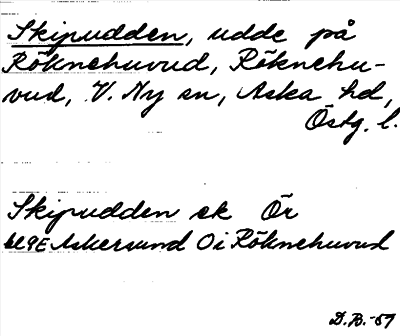 Skipudden, udde på
Röknehuvud, Röknehu-
vud, V. Ny sn, Aska hd,
Östg. l.
Skipudden ek Ör
bl 9E Askersund Oi Röknehuvud
D.B.-57